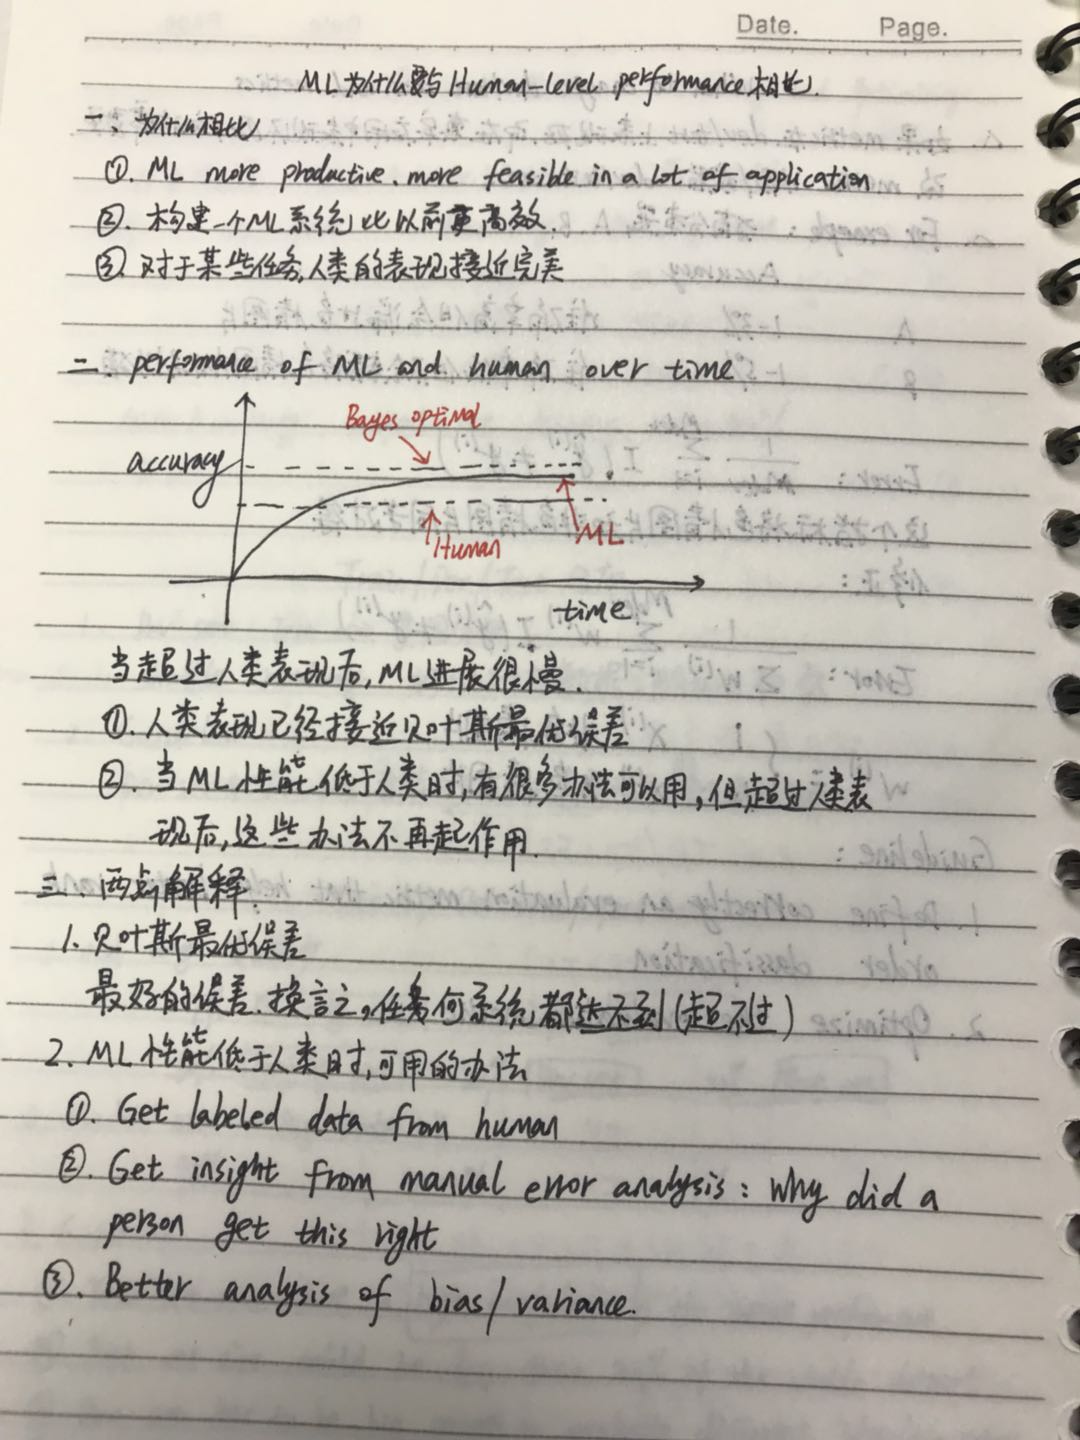 Date. Page.
ML为什么要与Human-level performance相比.
一、为什么相比
①. ML more productive. more feasible in a lot of application
②. 构建一个ML系统比以前更高效.
③. 对于某些任务,人类的表现接近完美
二. performance of ML and human over time
Bayes optimal
accuracy
Human
ML
time
当超过人类表现后,ML进展很慢.
①. 人类表现已经接近贝叶斯最优误差
②. 当ML性能低于人类时,有很多办法可以用,但超过人类表
现后,这些办法不再起作用.
三、两点解释.
1. 贝叶斯最优误差
最好的误差.换言之,任何系统都达不到(超不过)
2. ML性能低于人类时,可用的办法
①. Get labeled data from human
②. Get insight from manual error analysis: Why did a
person get this right
③. Better analysis of bias/variance.